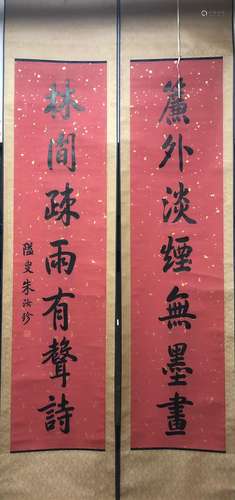 簾外淡煙無墨畫
林間疎雨有聲詩
隘叟朱汝珍